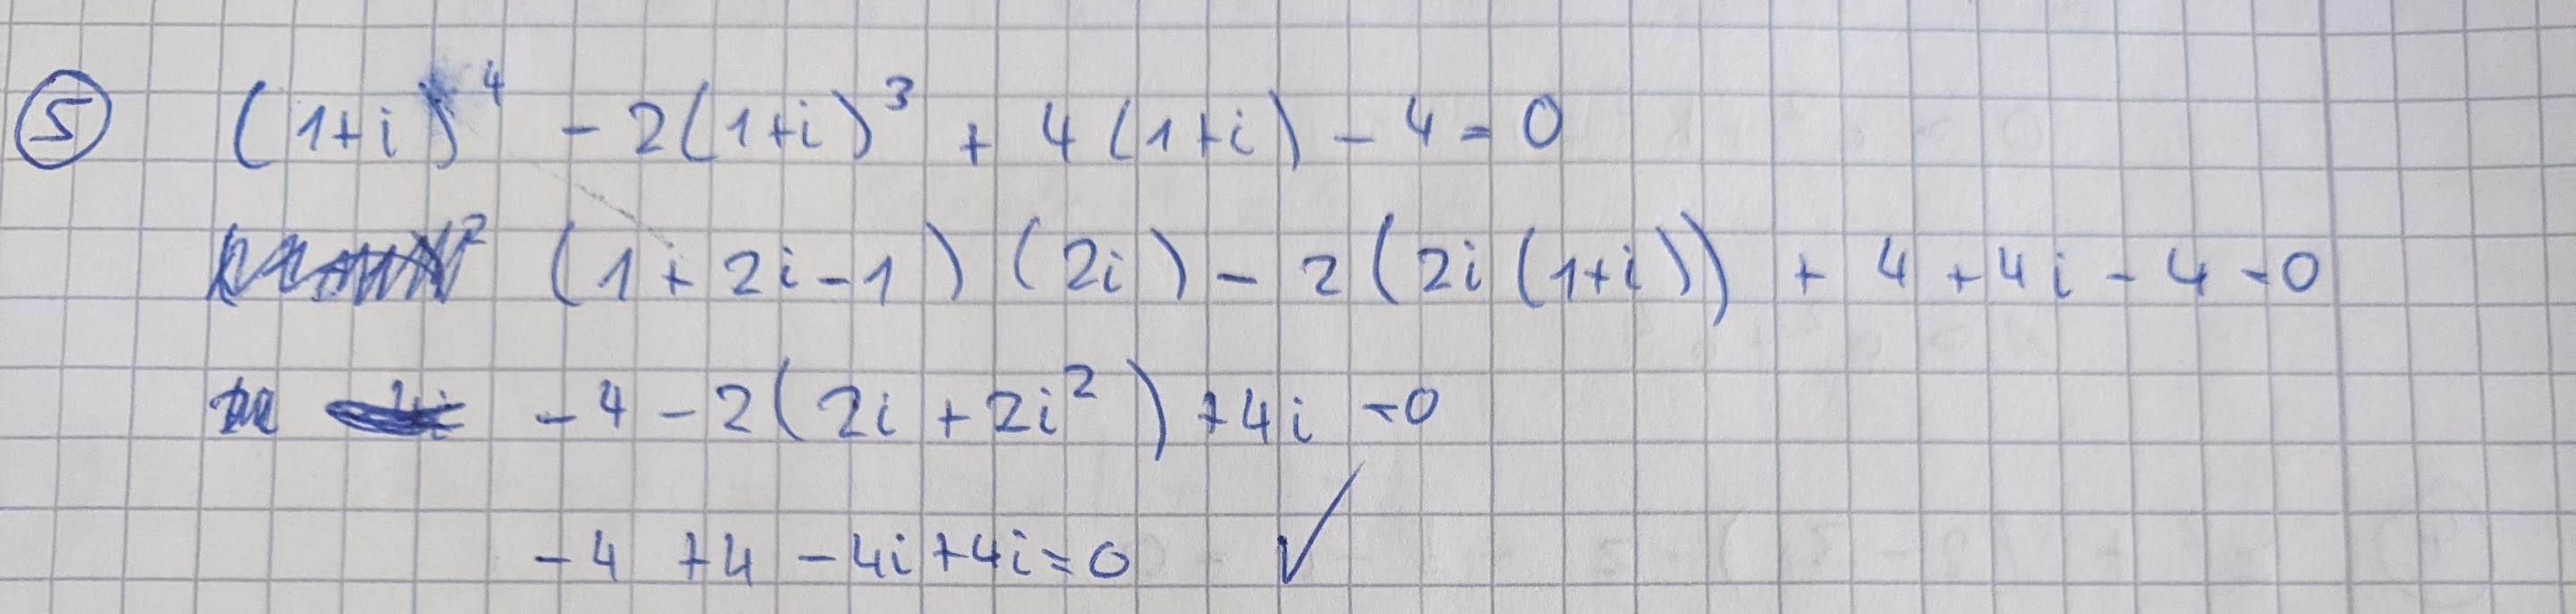 ⑤ (1+i)⁴ - 2(1+i)³ + 4(1+i) - 4 = 0
² (1+2i-1)(2i) - 2(2i(1+i)) + 4 + 4i - 4 = 0
-4 - 2(2i+2i²) + 4i = 0
-4 +4 -4i+4i=0 ✓